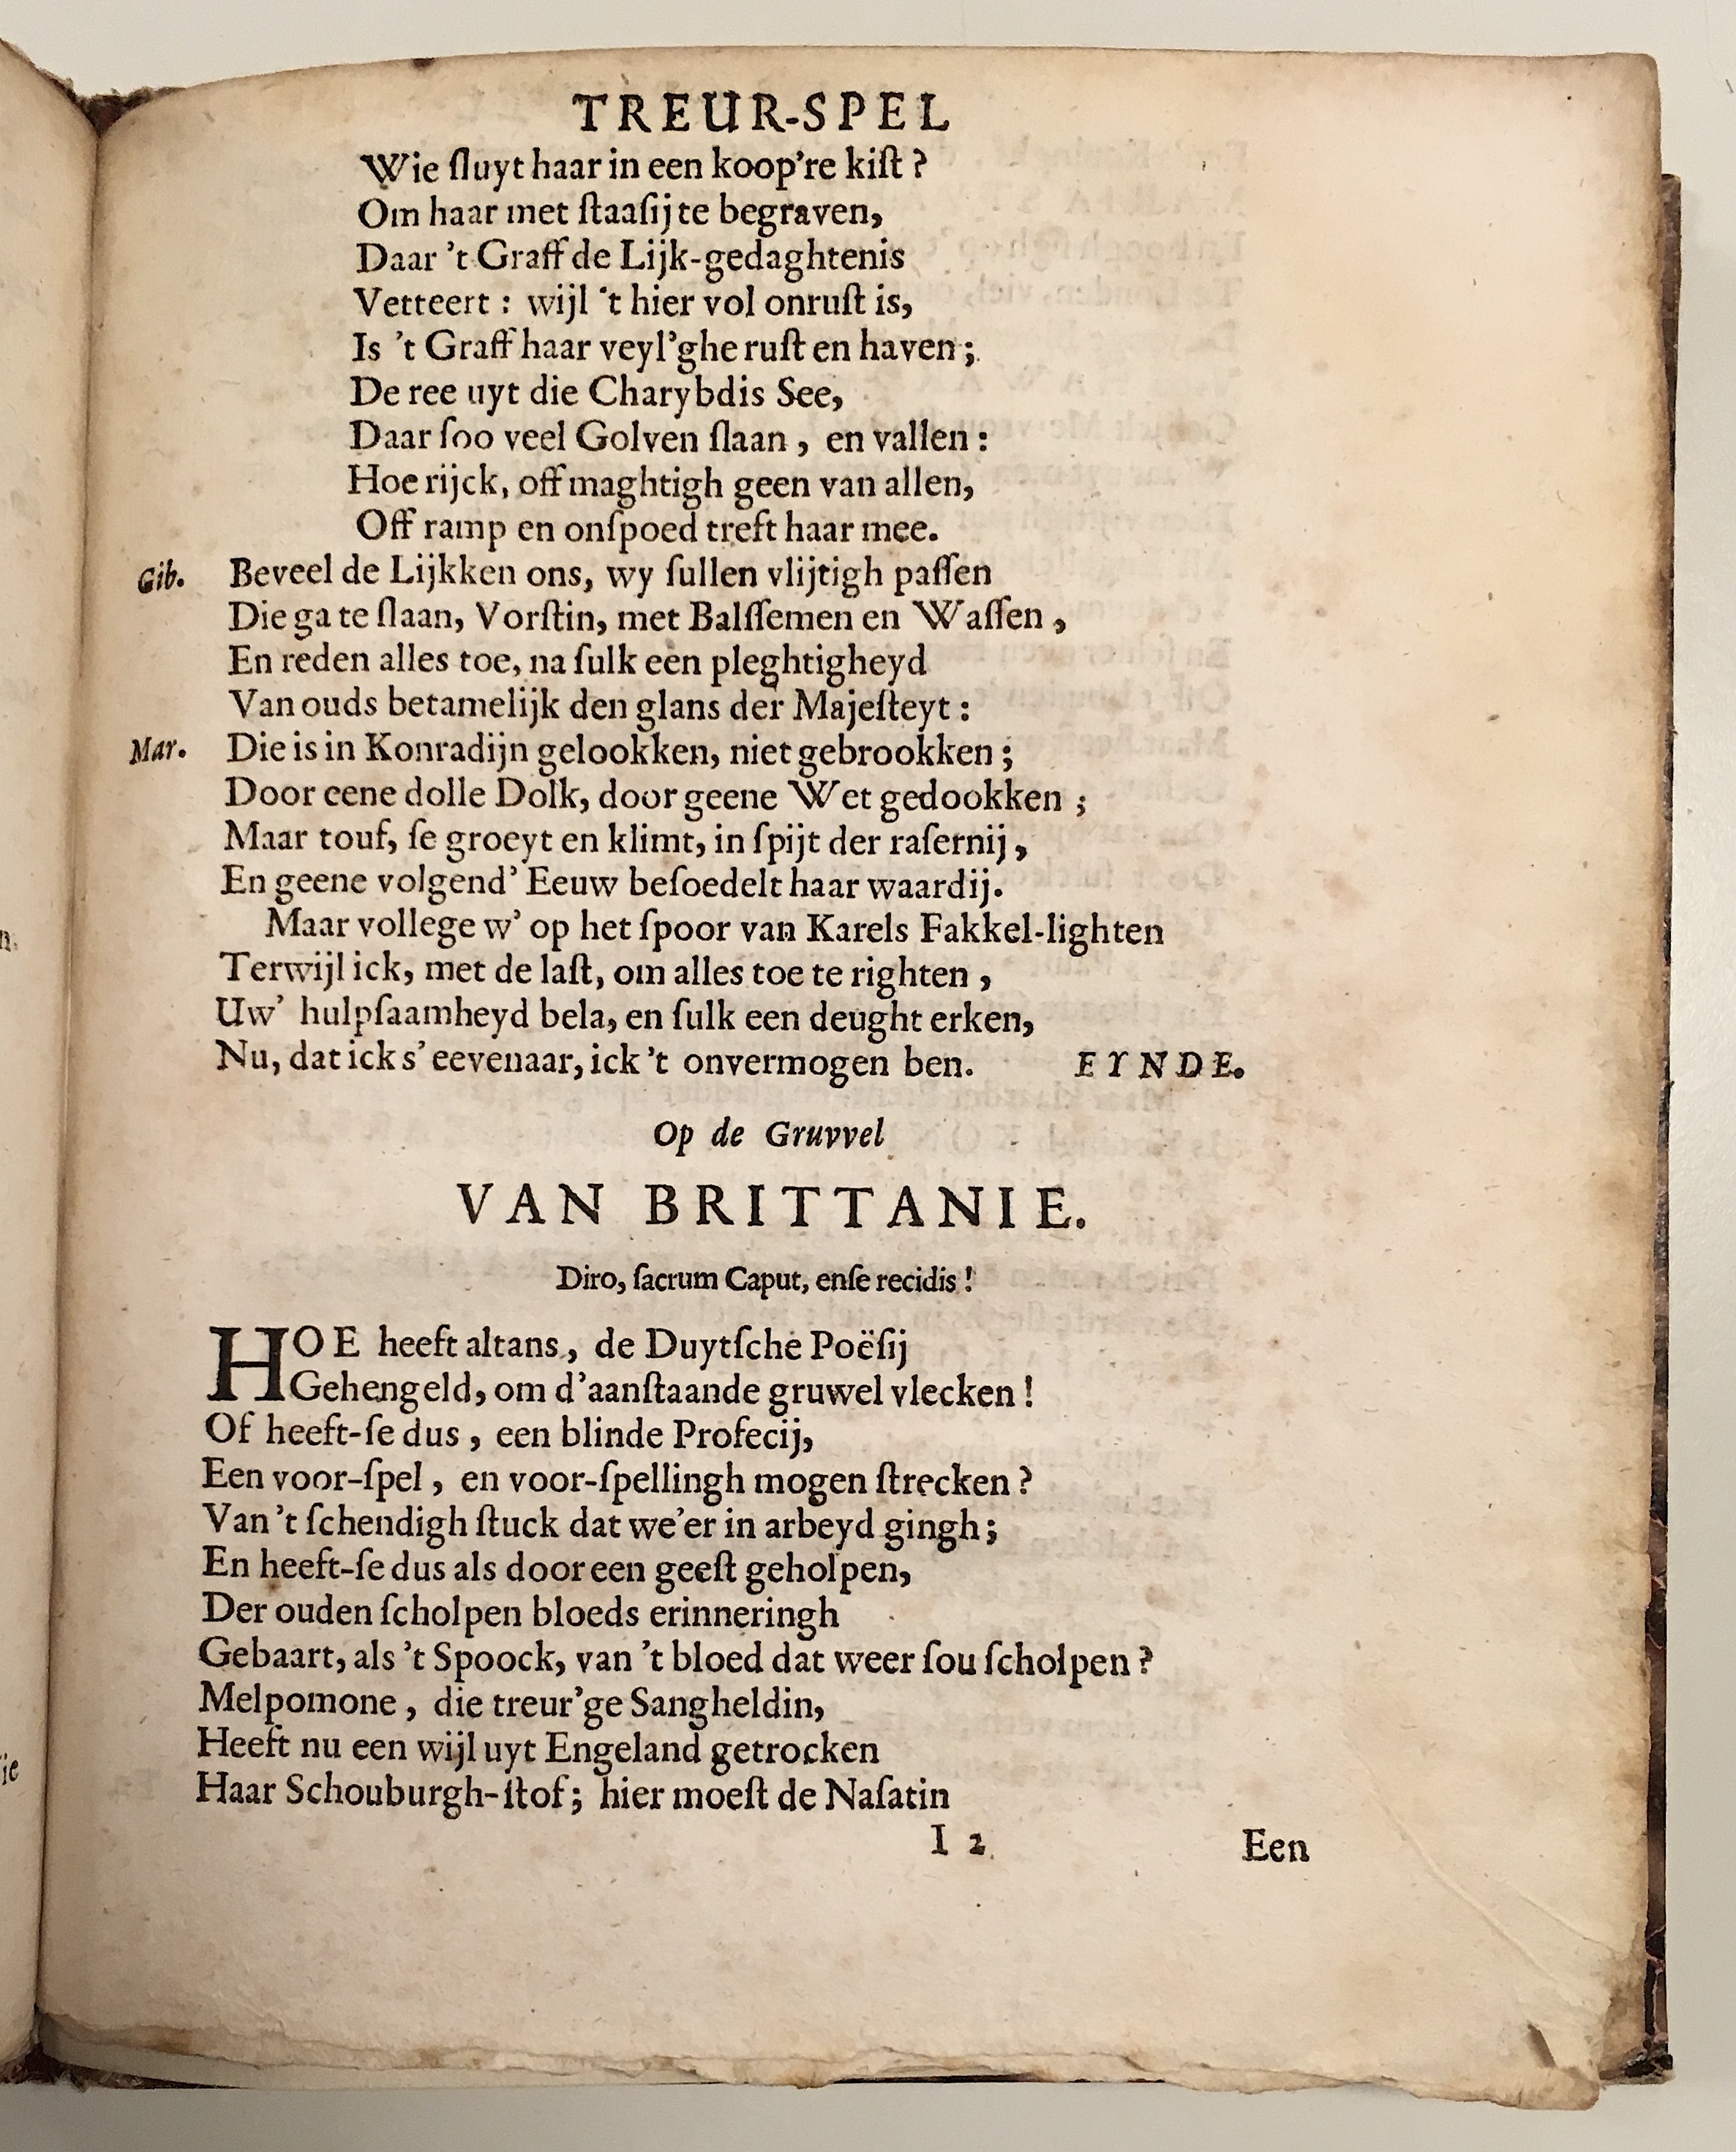 TREUR-SPEL
Wie ſluyt haar in een koop’re kiſt ?
Om haar met ſtaaſij te begraven,
Daar ’t Graff de Lijk-gedaghtenis
Vetteert : wijl ‘t hier vol onruſt is,
Is ’t Graff haar veyl’ghe ruſt en haven ;
De ree uyt die Charybdis See,
Daar ſoo veel Golven ſlaan , en vallen :
Hoe rijck, off maghtigh geen van allen,
Off ramp en onſpoed treft haar mee.
Gib. Beveel de Lijkken ons, wy ſullen vlijtigh paſſen
Die ga te ſlaan, Vorſtin, met Balſſemen en Waſſen ,
En reden alles toe, na ſulk een pleghtigheyd
Van ouds betamelijk den glans der Majeſteyt :
Mar. Die is in Konradijn gelookken, niet gebrookken ;
Door eene dolle Dolk, door geene Wet gedookken ;
Maar touf, ſe groeyt en klimt, in ſpijt der raſernij ,
En geene volgend’ Eeuw beſoedelt haar waardij.
Maar vollege w’ op het ſpoor van Karels Fakkel-lighten
Terwijl ick, met de laſt, om alles toe te righten ,
Uw’ hulpſaamheyd bela, en ſulk een deught erken,
Nu, dat ick s’ eevenaar, ick ’t onvermogen ben. EYNDE.
Op de Gruvvel
VAN BRITTANIE.
Diro, ſacrum Caput, enſe recidis !
HOE heeft altans , de Duytſche Poëſij
Gehengeld, om d’aanſtaande gruwel vlecken !
Of heeft-ſe dus , een blinde Profecij,
Een voor-ſpel , en voor-ſpellingh mogen ſtrecken ?
Van ’t ſchendigh ſtuck dat we’er in arbeyd gingh ;
En heeft-ſe dus als door een geeſt geholpen,
Der ouden ſcholpen bloeds erinneringh
Gebaart, als ’t Spoock, van ’t bloed dat weer ſou ſcholpen ?
Melpomone , die treur’ge Sangheldin,
Heeft nu een wijl uyt Engeland getrocken
Haar Schouburgh-ſtof ; hier moeſt de Naſatin
I 2 Een